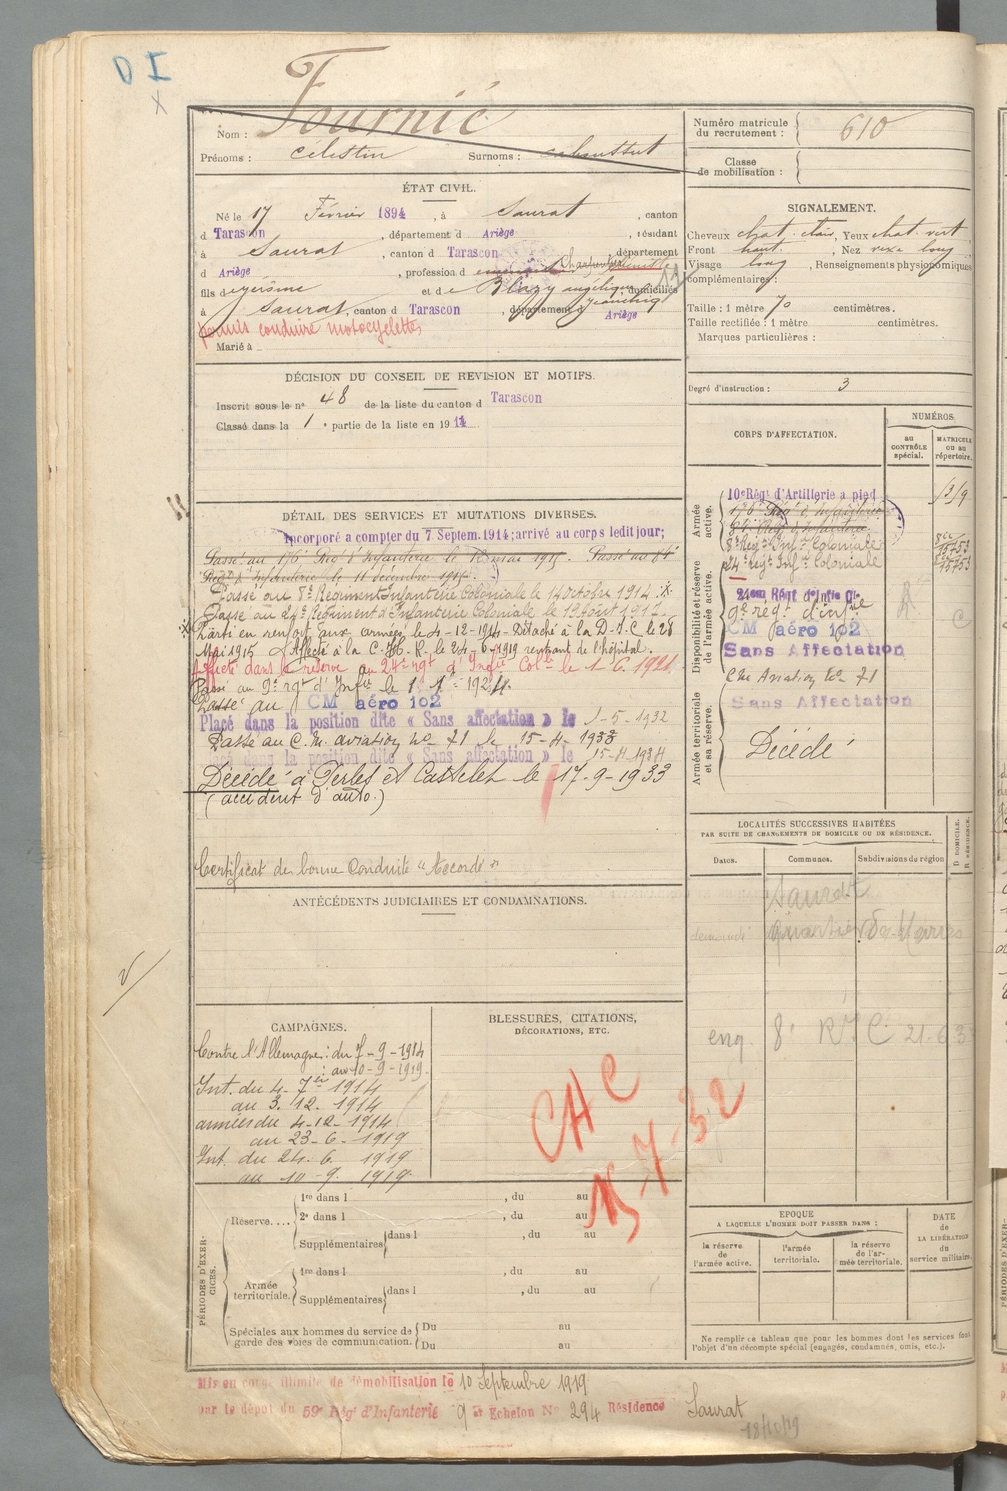 D I
X
Nom : Fournié
Prénoms : Célestin Surnoms :
Numéro matricule du recrutement : 610
Classe de mobilisation :
ÉTAT CIVIL.
Né le 17 Février 1894, à Saurat, canton
d Tarascon, département d Ariège, résidant
à Saurat, canton d Tarascon département
d Ariège, profession d Charpentier
fils de Jérôme et de Blazy angélique, domiciliés
à Saurat, canton d Tarascon, département d Ariège
permis conduire motocyclettes
Marié à
SIGNALEMENT.
Cheveux chat. clair, Yeux chat. vert
Front haut, Nez long
Visage long, Renseignements physionomiques
complémentaires :
Taille : 1 mètre 70 centimètres.
Taille rectifiée : 1 mètre centimètres.
Marques particulières :
Degré d'instruction : 3
DÉCISION DU CONSEIL DE REVISION ET MOTIFS.
Inscrit sous le n° 48 de la liste du canton d Tarascon
Classé dans la 1e partie de la liste en 1914
DÉTAIL DES SERVICES ET MUTATIONS DIVERSES.
Incorporé a compter du 7 Septem. 1914; arrivé au corps ledit jour;
Passé au 176e Régt d'Infanterie le 12 mai 1915. Passé au 84e
Régt d'Infanterie le 11 décembre 1915.
Passé au 8e Régiment Infanterie Coloniale le 14 octobre 1914.
Passé au 24e Régiment d'Infanterie Coloniale le 12 Août 1917.
Parti en renfort aux armées le 4-12-1914 Détaché à la D.I.C le 28
Mai 1915 Affecté à la C.H.R. le 24-6-1919 rentrant de l'hôpital.
Affecté dans la réserve au 24e rgt d'Infie Colle le 1-6-1921.
Passé au 9e rgt d'Infie le 1-7-1924.
Passé au CM aéro 102
Placé dans la position dite « Sans affectation » le 1-5-1932
Passé au C.M. aviation No 71 le 15-4-1933
dans la position dite « Sans affectation » le 15-4-1934
Décédé à Perles et Castelet le 17-9-1933
(accident d'auto.)
Certificat de bonne Conduite "Accordé"
CORPS D'AFFECTATION.
NUMÉROS
au CONTRÔLE spécial.
MATRICULE ou au répertoire.
Armée active.
10e Régt d'Artillerie a pied
176e Régt d'Infanterie
84e Régt d'Infanterie
8e Régt Infie Coloniale 15753
24e Régt Infie Coloniale 15753
Disponibilité et réserve de l'armée active.
24em Régt d'Infie Cle
9e régt d'infie
CM aéro 102
Sans Affectation
Cie Aviation No 71
Armée territoriale et sa réserve.
Sans Affectation
Décédé
LOCALITÉS SUCCESSIVES HABITÉES
PAR SUITE DE CHANGEMENTS DE DOMICILE OU DE RÉSIDENCE.
Dates. Communes. Subdivisions de région
D DOMICILE. R RÉSIDENCE.
Saurat
eng. 8e R.I.C 21-6-33
ANTÉCÉDENTS JUDICIAIRES ET CONDAMNATIONS.
CAMPAGNES.
Contre l'Allemagne : du 7-9-1914
au 10-9-1919.
Int. du 7-7bre 1914
au 3.12.1914
armées du 4-12-1914
au 23-6-1919
Int. du 24.6 1919
au 10-9-1919.
BLESSURES, CITATIONS, DÉCORATIONS, ETC.
CAC
15-7-32
PÉRIODES D'EXERCICES.
Réserve.... 1re dans l , du au
2e dans l , du au
Supplémentaires dans l , du au
Armée territoriale. 1re dans l , du au
Supplémentaires dans l , du au
Spéciales aux hommes du service de garde des voies de communication. Du au
Du au
EPOQUE
A LAQUELLE L'HOMME DOIT PASSER DANS :
la réserve de l'armée active.
l'armée territoriale.
la réserve de l'armée territoriale.
DATE de LA LIBÉRATION du service militaire.
Ne remplir ce tableau que pour les hommes dont les services font
l'objet d'un décompte spécial (engagés, condamnés, omis, etc.).
Mis en congé illimité de démobilisation le 10 Septembre 1919
par le dépôt du 59e Régt d'Infanterie 9e Echelon No 294 Résidence Saurat